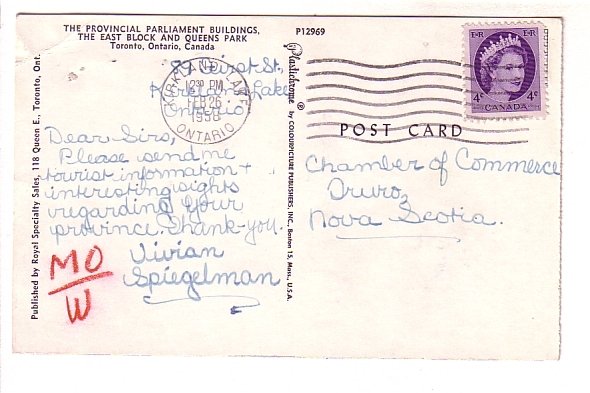 THE PROVINCIAL PARLIAMENT BUILDINGS,
THE EAST BLOCK AND QUEENS PARK
Toronto, Ontario, Canada
P12969
St.
Kirkland Lake
Ontario
KIRKLAND LAKE
1230 PM
FEB 26
1958
ONTARIO
Dear Sirs,
Please send me
tourist information +
interesting sights
regarding your
province. Thank-you.
Vivian
Spiegelman
MO
W
Published by Royal Specialty Sales, 118 Queen E., Toronto, Ont.
Plastichrome ® by COLOURPICTURE PUBLISHERS, INC., Boston 15, Mass., U.S.A.
E·R E·R
4¢ 4¢
CANADA
POST CARD
Chamber of Commerce
Truro,
Nova Scotia.